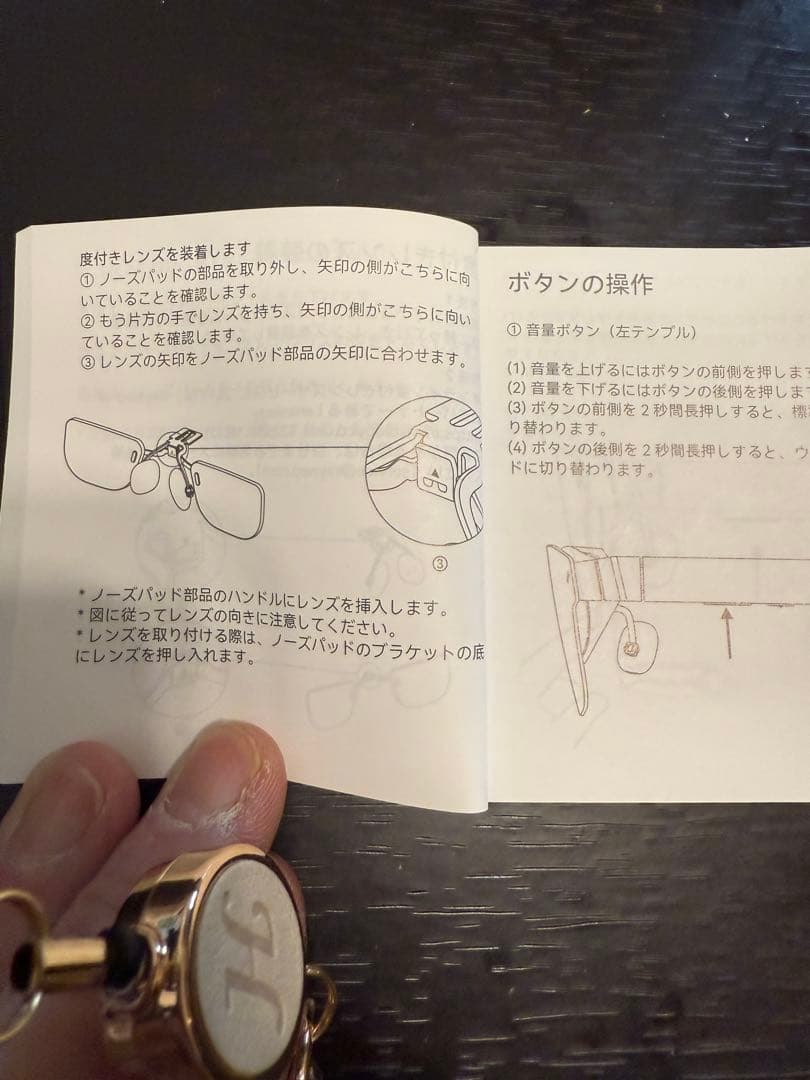 度付きレンズを装着します
① ノーズパッドの部品を取り外し、矢印の側がこちらに向
いていることを確認します。
② もう片方の手でレンズを持ち、矢印の側がこちらに向い
ていることを確認します。
③ レンズの矢印をノーズパッド部品の矢印に合わせます。
③
* ノーズパッド部品のハンドルにレンズを挿入します。
* 図に従ってレンズの向きに注意してください。
* レンズを取り付ける際は、ノーズパッドのブラケットの底
にレンズを押し入れます。
ボタンの操作
① 音量ボタン（左テンプル）
(1) 音量を上げるにはボタンの前側を押します
(2) 音量を下げるにはボタンの後側を押しま
(3) ボタンの前側を 2 秒間長押しすると、標
り替わります。
(4) ボタンの後側を 2 秒間長押しすると、ウ
ドに切り替わります。
H